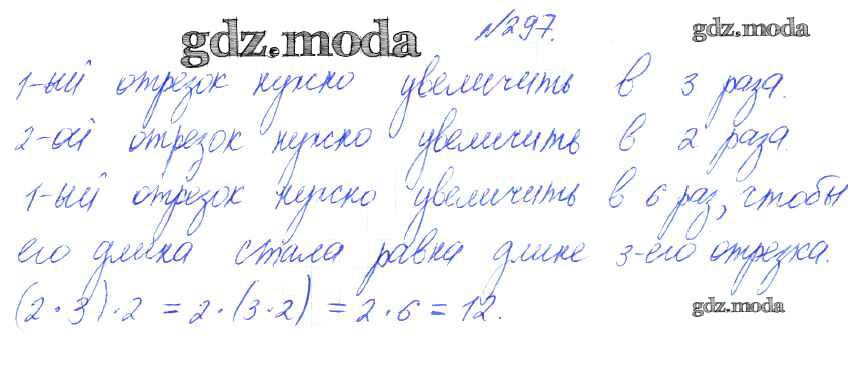 gdz.moda №297. gdz.moda
1-ый отрезок нужно увеличить в 3 раза.
2-ой отрезок нужно увеличить в 2 раза.
1-ый отрезок нужно увеличить в 6 раз, чтобы
его длина стала равна длине 3-его отрезка.
(2·3)·2=2·(3·2)=2·6=12.
gdz.moda